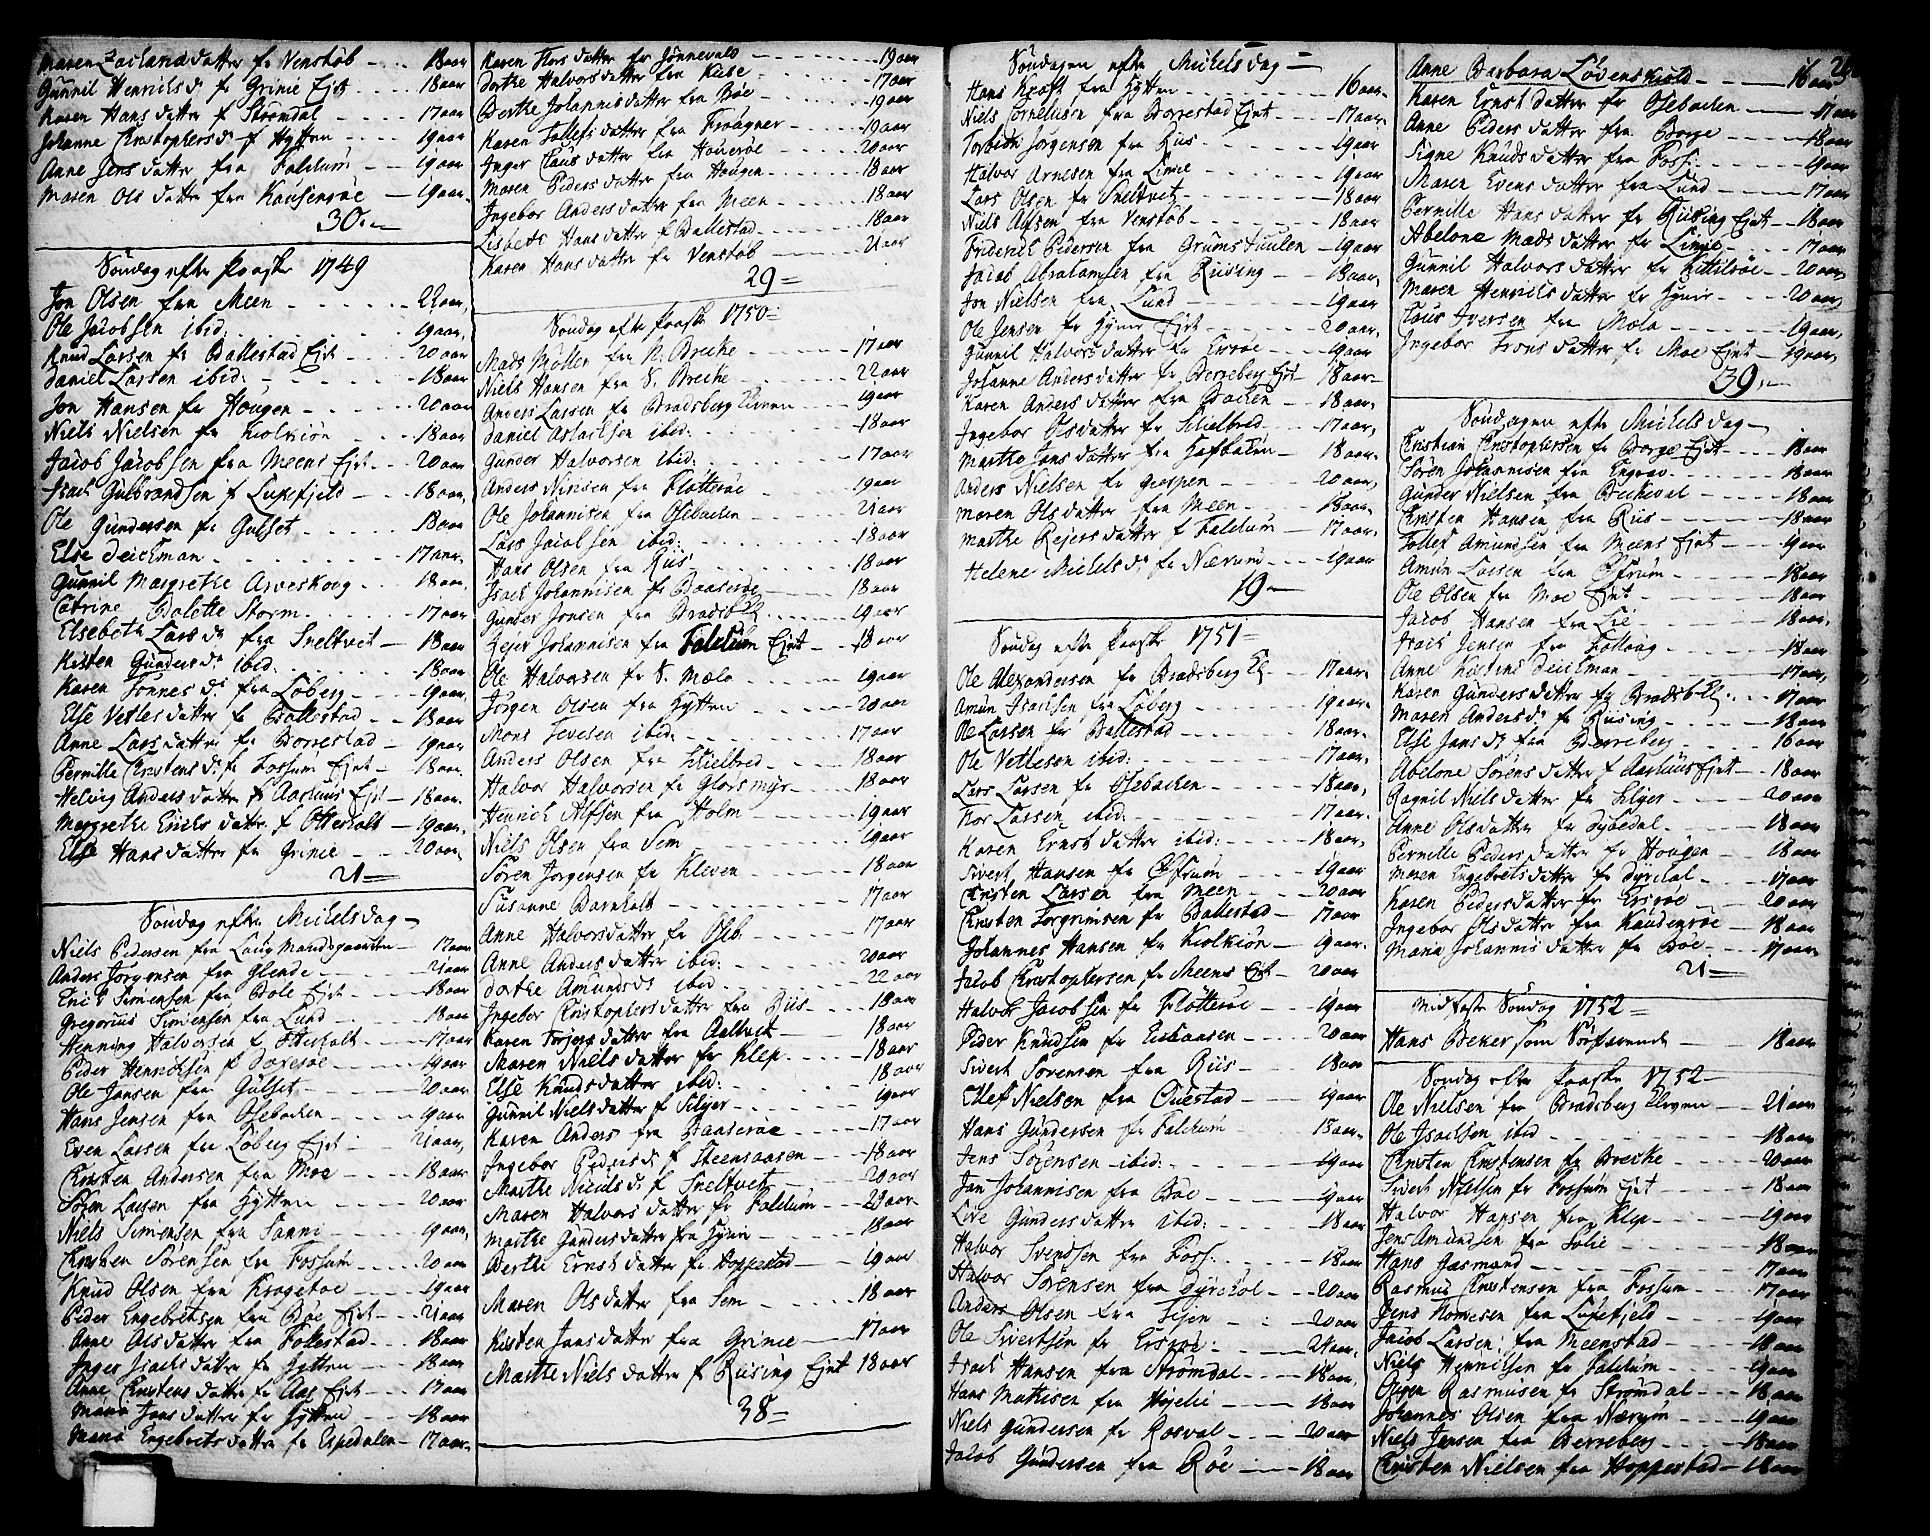 Maren Zachariasdatter fr Venstøb - - - 18 aar
Gunnil Henrichsd. fr Grinie Ejet - - - 18 aar
Karen Hansdatter f Strømdal - - - 17 aar
Johanne Christophersd. f Hytten - - - 19 aar
Anne Jensdatter fra Faldum - - - 19 aar
Maren Olsdatter fra Kausenrøe - 19 aar
30
Søndag efter Paaske 1749
Jon Olsen fra Meen - - - 22 aar
Ole Jacobsen ibid: - - - 19 aar
Knud Larsen fr Ballestad Ejet - - 20 aar
Daniel Larsen ibid: - - - 18 aar
Jon Hansen fr Hougen - - - 20 aar
Niels Nielsen fr Kiolkiøn - - 18 aar
Jacob Jacobsen fra Meens Ejet - - 20 aar
Isach Gulbrandsen f Luxefjeld - - 18 aar
Ole Gundersen fr Gulset - - - 18 aar
Else Deichman - - - 17 aar
Gunnil Margrethe Arveskoug - - 18 aar
Catrine Bolette Storm - - - 17 aar
Elsebeth Larsd. fra Sneltvet - - 18 aar
Kisten Gundersd. ibid. - - - 18 aar
Karen Tonnesd. fra Løberg - - - 19 aar
Else Vetlesdatter fr Ballestad - - 18 aar
Anne Larsdatter fr Borrestad - 19 aar
Pernille Christensd. fr Fossum Ejet - - 18 aar
Helvig Andersdatter f Aarhuus Ejet - 18 aar
Margrethe Erichsdatter f Otterholt - 19 aar
Else Hansdatter fr Grinie - - 20 aar
21
Søndag efter Michelsdag
Niels Pedersen fra Laugmandsgaarden - 17 aar
Anders Jørgensen fra Glende - - - 21 aar
Erich Simensen fra Bole Ejet - - - 18 aar
Gregorius Simensen fra Lund - - - 18 aar
Henning Halvorsen f Otterholt - - 17 aar
Peder Henrichsen f Dorerøe - - - 19 aar
Ole Jansen fra Gulset - - - 20 aar
Hans Jensen fra Osebachen - - - 19 aar
Even Larsen fra Løberg Ejet - - 21 aar
Christen Andersen fra Moe - - - 18 aar
Søren Larsen fra Hytten - - - 20 aar
Niels Simonsen fra Sanni - - - 19 aar
Christen Sørensen fra Fossum - - 20 aar
Knud Olsen fra Kragetoe - - - 19 aar
Peder Engebretsen fra Bøe Ejet - - 21 aar
Anne Olsdatter fra Follestad - - 18 aar
Inger Isachsdatter fr Hytten - - - 18 aar
Anne Christensdatter fr Aas Ejet - - 17 aar
Maria Jonsdatter fr Hytten - - - 18 aar
Maria Engebretsdatter fr Espedalen - 17 aar
Karen Thorsdatter fr Jønnevald - - - 19 aar
Dorthe Halvorsdatter fra Kiise - - - 17 aar
Berthe Johannisdatter fra Bøe - - - 19 aar
Karen Tollefsdatter fra Frogner - - - 19 aar
Inger Clausdatter fra Houerøe - - - 20 aar
Maren Pedersdatter fra Hougen - - - 18 aar
Ingebor Andersdatter fra Meen - - - 18 aar
Lisbeth Hansdatter f Ballestad - - - 18 aar
Karen Hansdatter fr Venstøb - - - 21 aar
29
Søndag efter Paaske 1750
Mads Møller fra N. Breche - - - 17 aar
Niels Hansen fra S. Breche - - - 22 aar
Anders Larsen fr Bradsberg Klevene - - 19 aar
Daniel Aslachsen ibid: - - - 18 aar
Gunder Halvorsen ibid: - - - 17 aar
Anders Nirisen fra Flotterøe - - - 19 aar
Ole Johannisen fra Osebachen - - - 21 aar
Lars Jacobsen ibid: - - - 18 aar
Hans Olsen fra Riis - - - 18 aar
Isach Johannisen fr Baaserøe - - - 18 aar
Gunder Jonsen fra Bradsb. - - - 19 aar
Rejer Johannisen fra Faldum Ejet - - 18 aar
Ole Halvorsen fr S. Mæla - - - 19 aar
Jørgen Olsen fra Hytten - - - 20 aar
Mons Tevesen ibid: - - - 17 aar
Anders Olsen fra Schielbred - - - 18 aar
Halvor Halvorsen fr Gloesmyr - - - 18 aar
Henrich Alfsen fra Holm - - - 19 aar
Niels Olsen fra Sem - - - 19 aar
Søren Jørgensen fr Kleven - - - 18 aar
Susanne Barnholt - - - 17 aar
Anne Halvorsdatter fr Oseb. - - - 17 aar
Anne Andersdatter ibid: - - - 20 aar
Dorthe Amundsd: ibid - - - 22 aar
Ingebor Christophersdatter fra Riis - - 18 aar
Karen Torjersdatter fra Aaltvet - - - 18 aar
Maren Nielsdatter fr Klep - - - 18 aar
Else Knudsdatter ibid: - - - 18 aar
Gunnil Nielsdatter f Silyer - - - 19 aar
Karen Anders. fra Baaserøe - - - 17 aar
Ingebor Pedersd: f Steensaasen - - 18 aar
Marthe Nirilsd: f Sneltvet - - 20 aar
Maren Halvorsdatter fr Faldum - - 20 aar
Marthe Gundersdatter fra Gjeru - - 18 aar
Berthe Ernstdatter fr Hoppestad - - 19 aar
Maren Olsdatter fra Sem - - - 18 aar
Kisten Jansdatter fra Grinie - - 17 aar
Marthe Nielsdatter f Riising Ejet 18 aar
38
Søndagen efter Michelsdag
Hans Kraft fra Hytten - - - 16 aar
Niels Cornelusen fra Borrestad Ejet - - 17 aar
Torbiøn Jørgensen fra Riis - - - 19 aar
Halvor Arnesen fra Limie - - - 19 aar
Lars Olsen fr Sneltvet - - - 18 aar
Niels Alfsen fra Venstøb - - - 18 aar
Friderich Pedersen fra Grumstuulen - 19 aar
Jacob Abrahamsen fra Riising - - - 18 aar
Jon Nielsen fra Lund - - - 19 aar
Ole Jensen fr Gjerre Ejet - - - 20 aar
Gunnil Halvorsdatter fr Ersrøe - - - 19 aar
Johanne Andersdatter fr Berreberg Ejet - 18 aar
Karen Andersdatter fra Bachen - - 18 aar
Ingebor Olsdatter fr Schielbred - - 17 aar
Marthe Jonsdatter fra Hafbachen - 18 aar
Anders Nielsen fr Gierpen - - - 20 aar
Maren Olsdatter fra Meen - - - 18 aar
Marthe Rejersdatter f Faldum - 17 aar
Helene Michelsd: fr Nærum - - - 19 aar
19
Søndag efter Paaske 1751
Ole Alexandersen fr Bradsberg Kl. - - 17 aar
Amun Isachsen fra Løberg - - - 19 aar
Ole Larsen fr Ballestad - - - 18 aar
Ole Vetlesen ibid: - - - 17 aar
Lars Larsen fr Osebachen - - - 18 aar
Thor Larsen ibid: - - - 17 aar
Karen Ernstdatter ibid: - - - 18 aar
Sivert Hansen fr Østrum - - - 19 aar
Christen Larsen fra Meen - - - 20 aar
Christen Torgrimsen fr Ballestad - - 17 aar
Johannes Hansen fr Kiolkiøn - - 19 aar
Jacob Christophersen fr Meens Ejet - 20 aar
Halvor Jacobsen fr Flotterøe - - 19 aar
Peder Knudsen fr Eichaasen - - 20 aar
Sivert Sørensen fra Riis - - - 18 aar
Ellef Nielsen fra Ouestad - - 19 aar
Hans Gundersen fr Faldum - - - 18 aar
Jens Sørensen ibid: - - - 19 aar
Jan Johannisen fra Boe - - - 19 aar
Live Gundersdatter ibid: - - - 18 aar
Halvor Svendsen fra Foss: - - - 18 aar
Halvor Sørensen fra Dyrcol - - - 20 aar
Anders Olsen fra Tejen - - - 20 aar
Ole Sivertsen fr Ersrøe: - - - 21 aar
Isach Hansen fra Strømdal - - - 18 aar
Hans Mathisen fra Højelie - - 18 aar
Niels Gundersen fr Rosval - - - 20 aar
Jacob Gundersen fra Røe - - - 18 aar
Anne Barbara Løvenskiold - - - 16 aar
Karen Ernstdatter fr Osebachen - - 17 aar
Anne Pedersdatter fra Borge - - - 18 aar
Signe Knudsdatter fra Foss: - - - 19 aar
Maren Evensdatter fra Lund - - - 17 aar
Pernille Hansdatter fr Riising Ejet - - 18 aar
Abelone Madsdatter fr Limie - - - 17 aar
Gunnil Halvorsdatter fr Kittilsøe - - 20 aar
Maren Henrichsdatter fr Gjerre - - - 20 aar
Claus Iversen fra Mæla - - - 19 aar
Ingebor Tronsdatter fr Moe Ejet - 19 aar
39
Søndagen efter Michelsdag
Christian Christophersen fr Borge Ejet - - 18 aar
Søren Johannisen fra Enggrav - - - 18 aar
Gunder Nielsen fra Becheval - - - 18 aar
Christen Hansen fra Riis - - - 18 aar
Tollef Amundsen fra Meens Ejet - - 19 aar
Amun Larsen fra Østrum - - - 18 aar
Ole Olsen fra Moe Ejet - - - 18 aar
Jacob Hansen fra Lie - - - 18 aar
Isach Jensen fra Follaug - - - 18 aar
Anne Kistine Deichman - - - 17 aar
Karen Gundersdatter fr Bradsb Kl: - - 17 aar
Maren Andersd: fr Riising - - - 18 aar
Else Jansd: fra Berreberg - - - 16 aar
Abelone Sørensdatter f Aarhuus Ejet - 18 aar
Ragnil Nielsdatter fra Silyer - - 20 aar
Anne Olsdatter fr Dybedal - - - 18 aar
Pernille Pedersdatter fr Hougen - 18 aar
Maren Engebretsdatter fr Dyrdal - - 17 aar
Karen Pedersdatter fr Ersrøe - - 20 aar
Ingebor Olsdatter fra Kaudenrøe - 18 aar
Maria Johannisdatter fr Boe - - 17 aar
21
Midfaste Søndag 1752
Hans Beker som Søefarende - - 18 aar
Søndag efter Paaske 1752
Ole Nielsen fra Bradsberg Klevene - - 21 aar
Ole Isachsen ibid - - - 18 aar
Christen Christensen fr Breche - - - 20 aar
Sivert Nielsen fr Fossum Ejet - - - 18 aar
Halvor Hansen fra Klep - - - 19 aar
Jens Amundsen fra Solie - - - 18 aar
Hans Gasmand - - - 17 aar
Rasmus Christensen fra Fossum - - 17 aar
Jens Nomesen fra Luxefjeld - - - 19 aar
Jacob Larsen fra Meenstad - - - 18 aar
Niels Henrichsen fr Faldum - - - 19 aar
Ougen Rasmusen fr Strømdal - - - 18 aar
Johannes Olsen fra Nærum - - - 19 aar
Niels Jensen fra Berreberg - - - 18 aar
Christen Nielsen fra Hoppestad - 18 aar